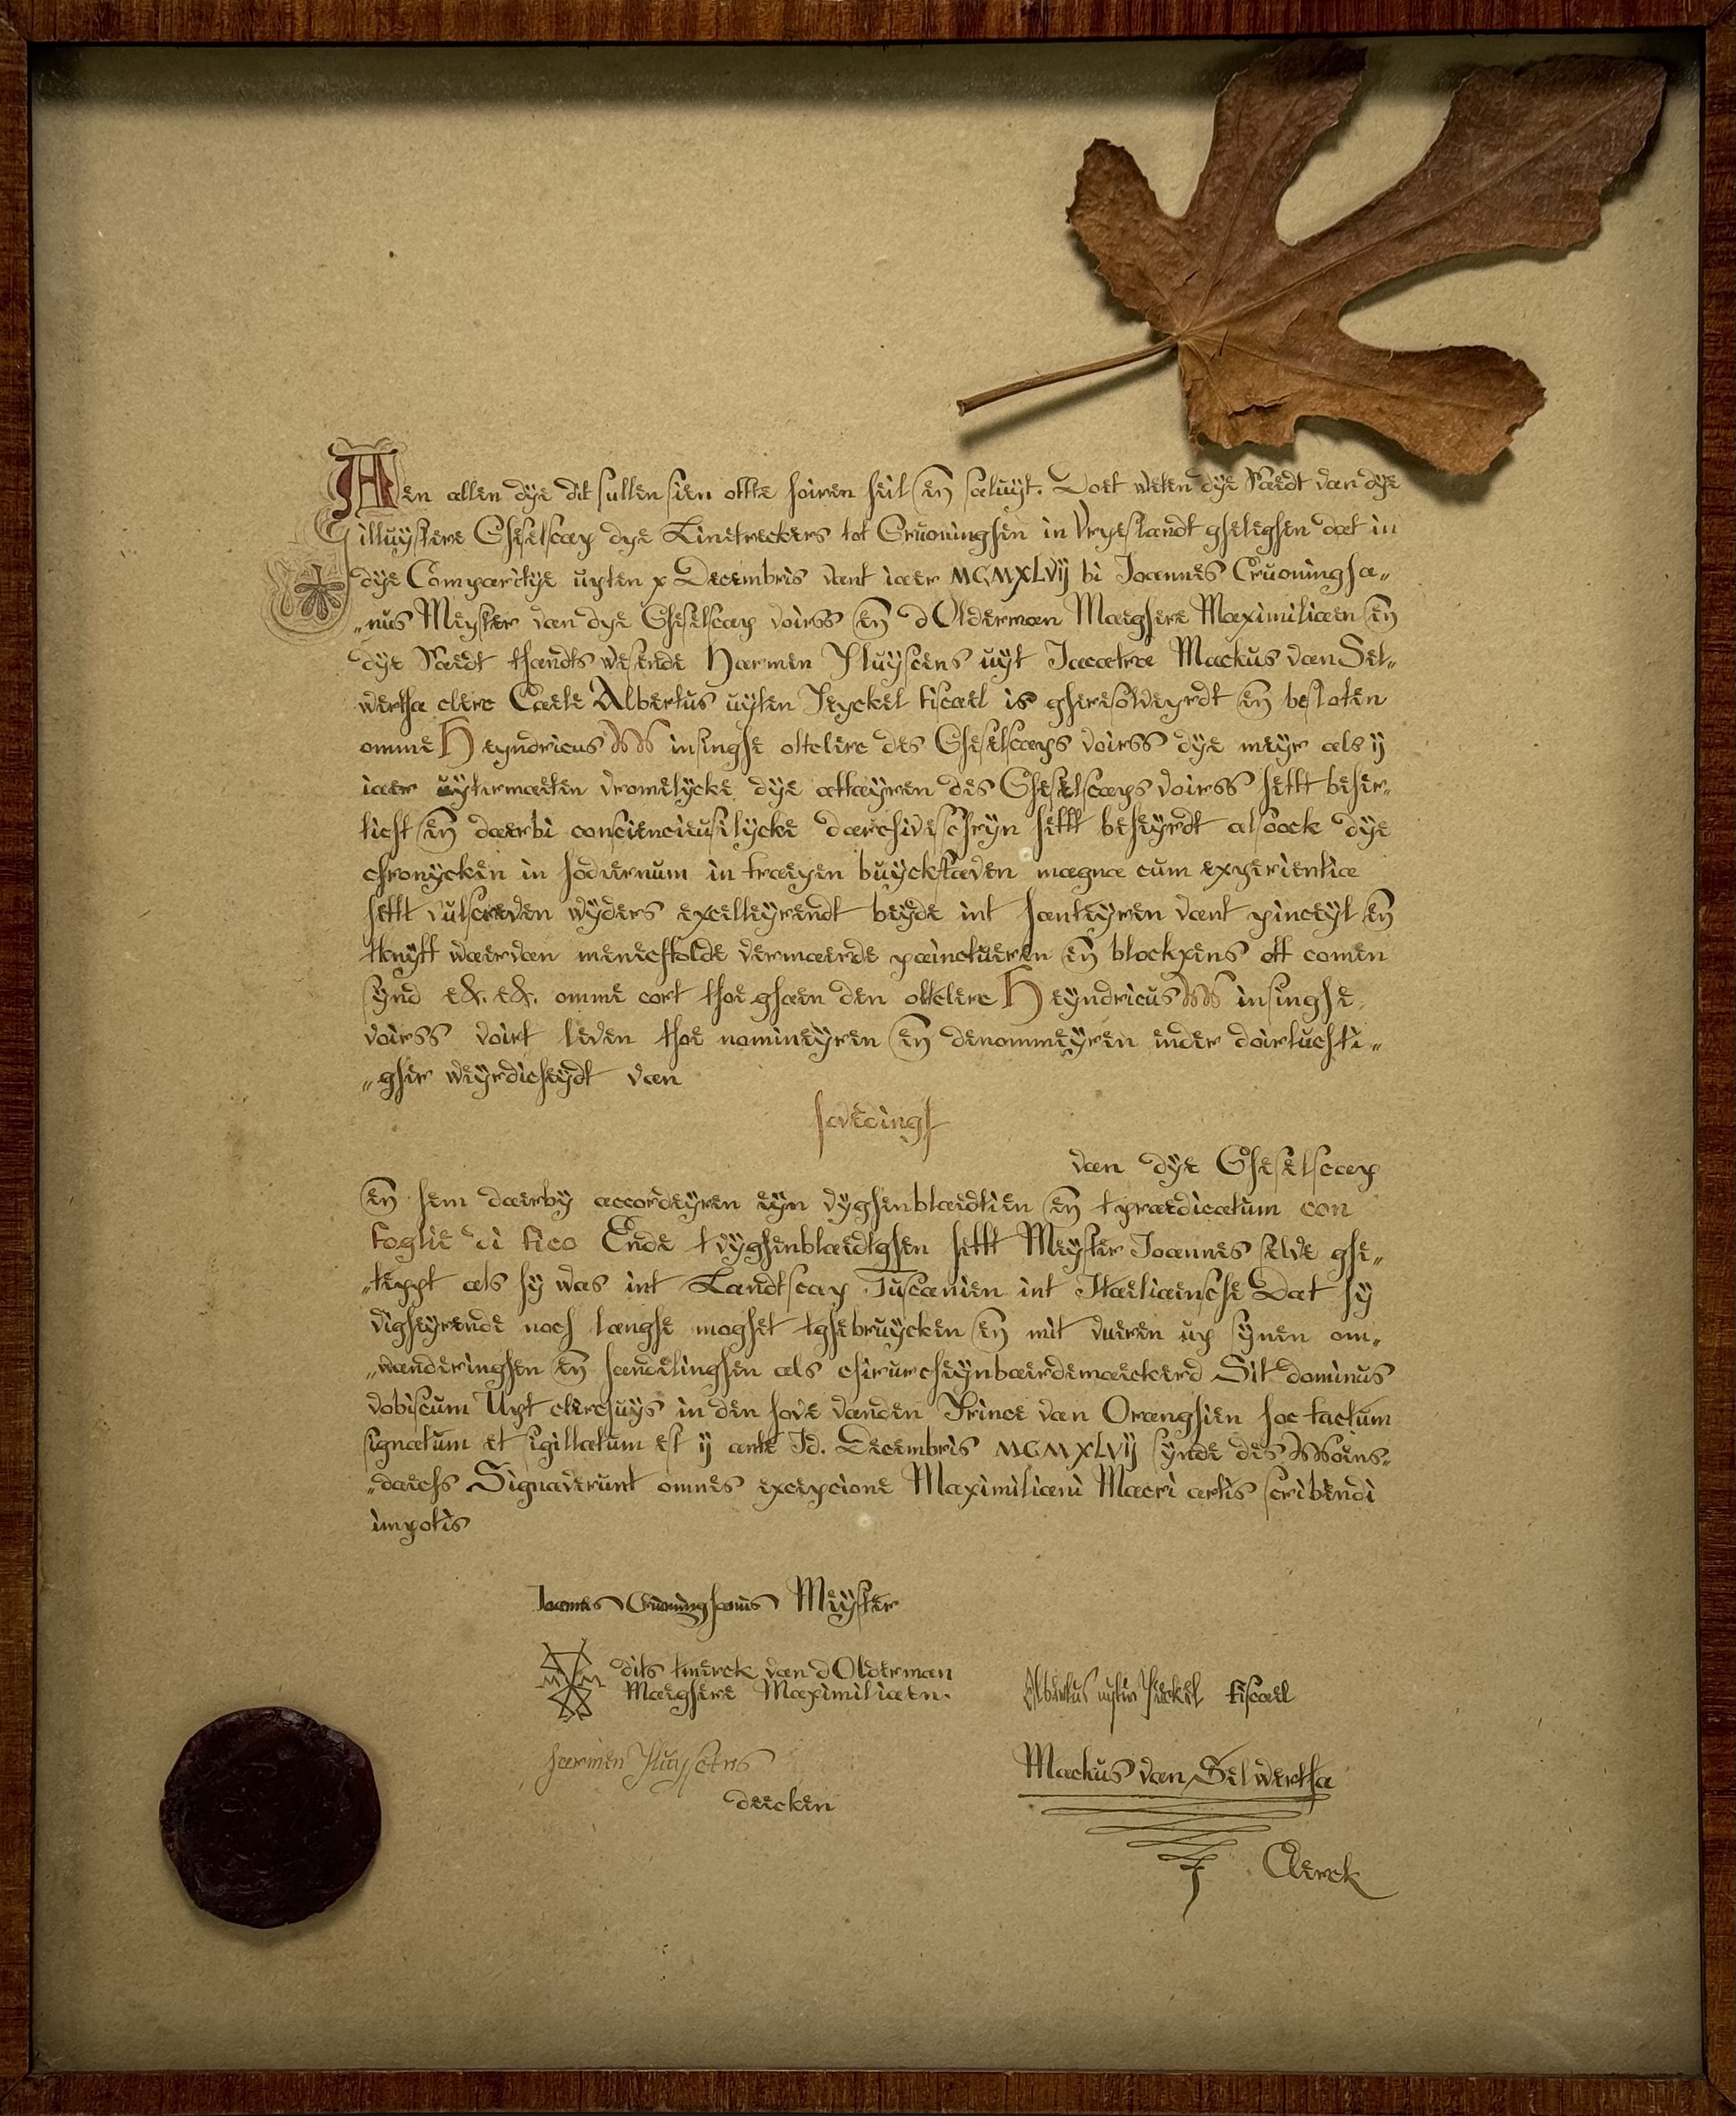 Aen allen dye dit sullen sien ofte hoiren heil eñ saluyt. Doet weten dye Raedt van dye
illuystere Gheselscap dye Linetreckers tot Gruoninghen in Vryeslandt gheleghen dat in
dye Comparitye upten x Decembris vant iaer MCMXLVij bi Joannes Gruoningha„
„nus Meyster van dye Gheselscap voirss eñ d Olderman Maeghere Maximiliaen eñ
dye Raedt thandts wesende Harmen Pluyscens uyt Jacatra Mackus van Sel„
wertha clerc Caele Albertus uyten Peyckel fiscael is gheresolveyrdt eñ besloten
omme Heyndricus W insinghe oltclerc des Gheselscaps voirss dye meyr als ij
iaer uytermaeten vromelycke dye affayren des Gheselscaps voirss hefft beher„
ticht eñ daerbi consciencieusilycke darchiveschryn hefft beheyrdt alsoock dye
chronycken in hodiernum in fraeyen buyckstaven magna cum experientia
hefft vulscreven wyders excelleyrendt beyde int hanteyren vant pinceyl eñ
tknyff waervan menechfolde vermaerde painctueren eñ blockpens off comen
synd &. &. omme cort thoe ghaen den oltclerc Heyndricus W insinghe
voirss voirt leven thoe nomineyren eñ denommeyren inder doirluchti„
„gher weyrdicheydt van
hovelingh
van dye Gheselscap
eñ hem daerby accordeyren eyn vyghenblaedtien eñ tpraedicatum con
foglie di fico Ende tvyghenblaedtghen hefft Meyster Joannes selve ghe„
„teppt als hy was int Landtscap Tuscanien int Itaeliaensche Dat hy
digheyrende noch langhe moghet tghebruycken eñ mit vueren up synen om„
„wanderinghen eñ handelinghen als chirurcheynbaerdemaeckerd Sit dominus
vobiscum Uyt clerchuys in den hove vanden Prince van Oranghien hoc factum
signatum et sigillatum est ij ante Id. Decembris MCMXLVij synde des Woens„
„daechs Signaverunt omnes excepcione Maximiliani Macri artis scribendi
impotis
Joannes Gruoninghanus Meyster
dits tmerck van d Olderman
Maeghere Maximiliaen.
Albertus uyten Peyckel fiscael
harmen Pluyscens
deecken
Mackus van Selwertha
Clerck